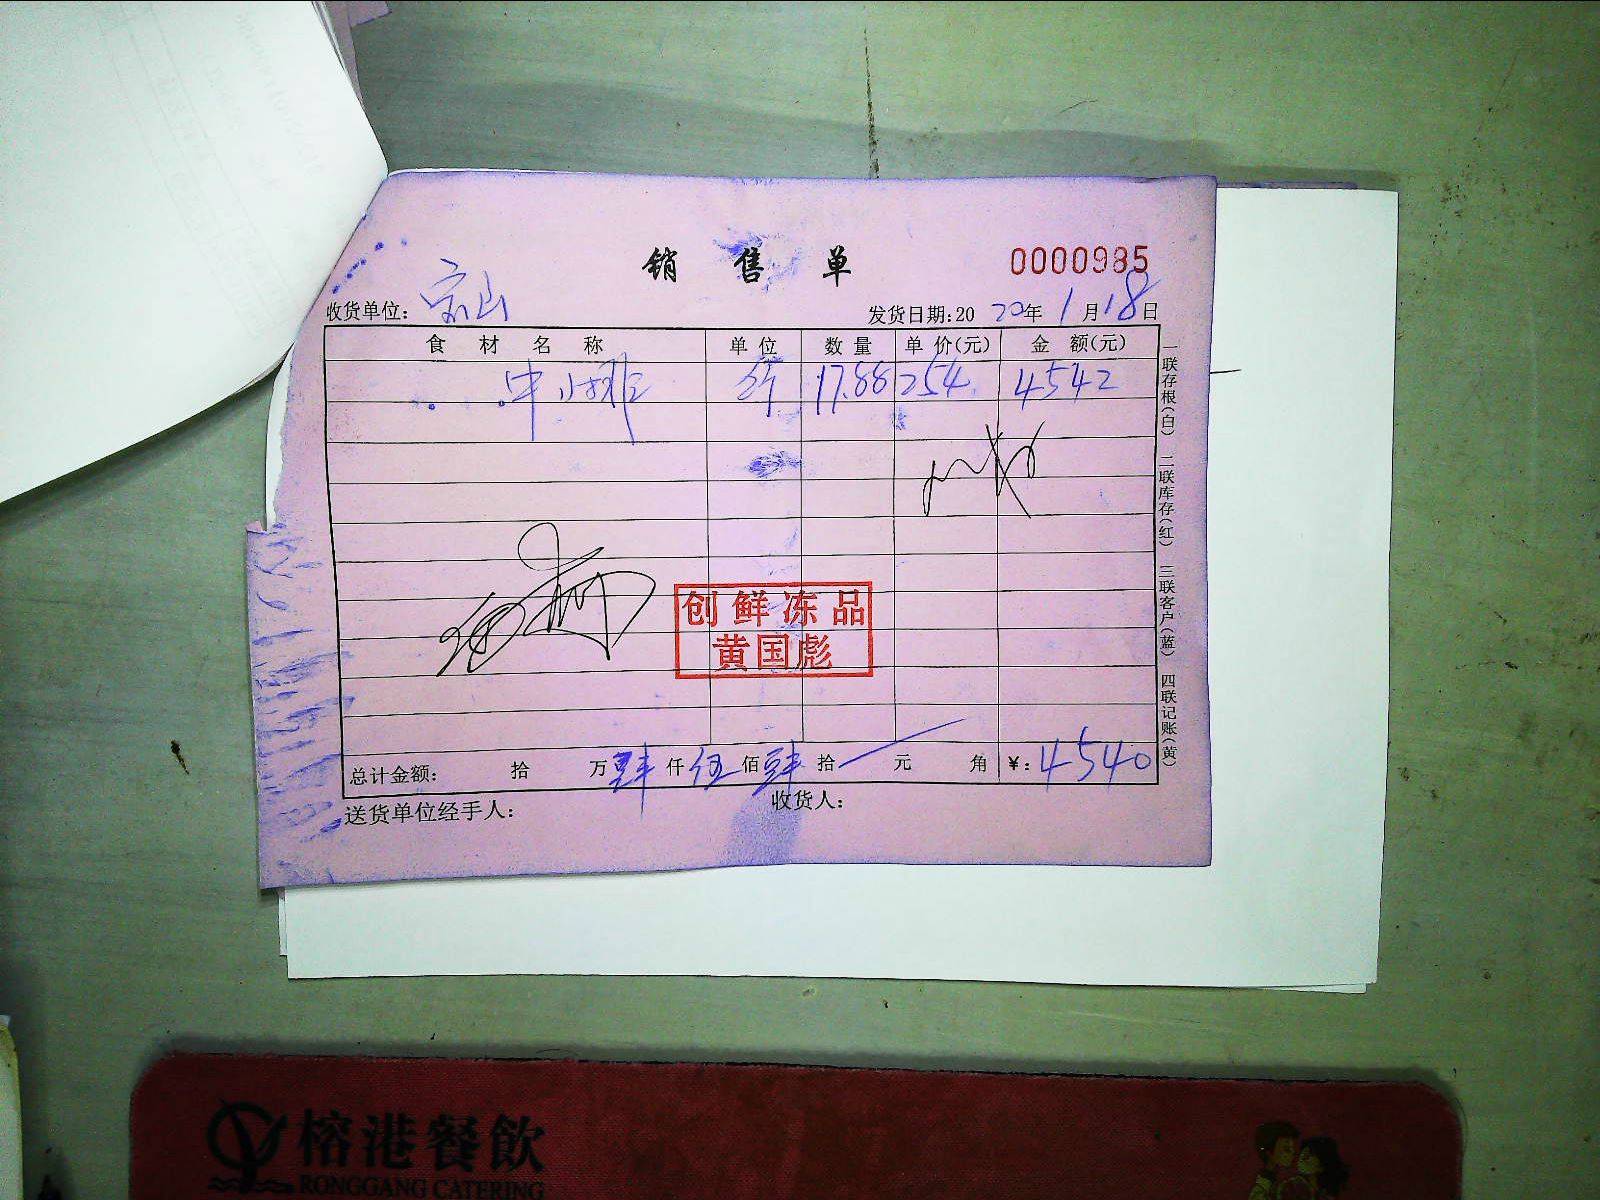 销售单
0000985
收货单位：宝山
发货日期：2020年1月18日
食材名称 单位 数量 单价(元) 金额(元)
中小排 斤 17.88 254 4542
创鲜冻品
黄国彪
总计金额： 拾 万肆仟伍佰肆拾 元 角 ￥：4540
送货单位经手人： 收货人：
一联存根(白) 二联库存(红) 三联客户(蓝) 四联记账(黄)
榕港餐飲
RONGGANG CATERING